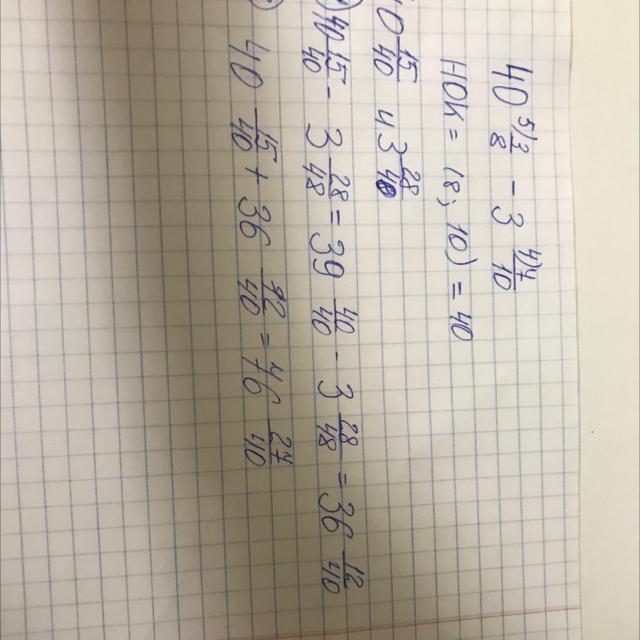 40 5\3/8 - 3 4\7/10
НОК = (8; 10) = 40
0 15/40 и 3 28/40
) 40 15/40 - 3 28/48 = 39 40/40 - 3 28/48 = 36 12/40
) 40 15/40 + 36 12/40 = 76 27/40